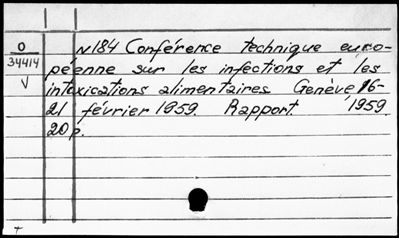 N184 Conférence technique euro-
péenne sur les infections et les
intoxications alimentaires. Genève 16-
21 février 1959. Rapport. 1959.
20 p.
O
34414
V
+